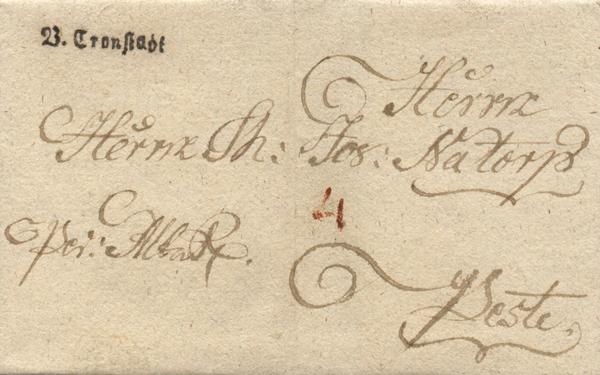 V. Cronſtadt
Herrn
Herrn Th: Jos: Natorp
4
per:
Peste.